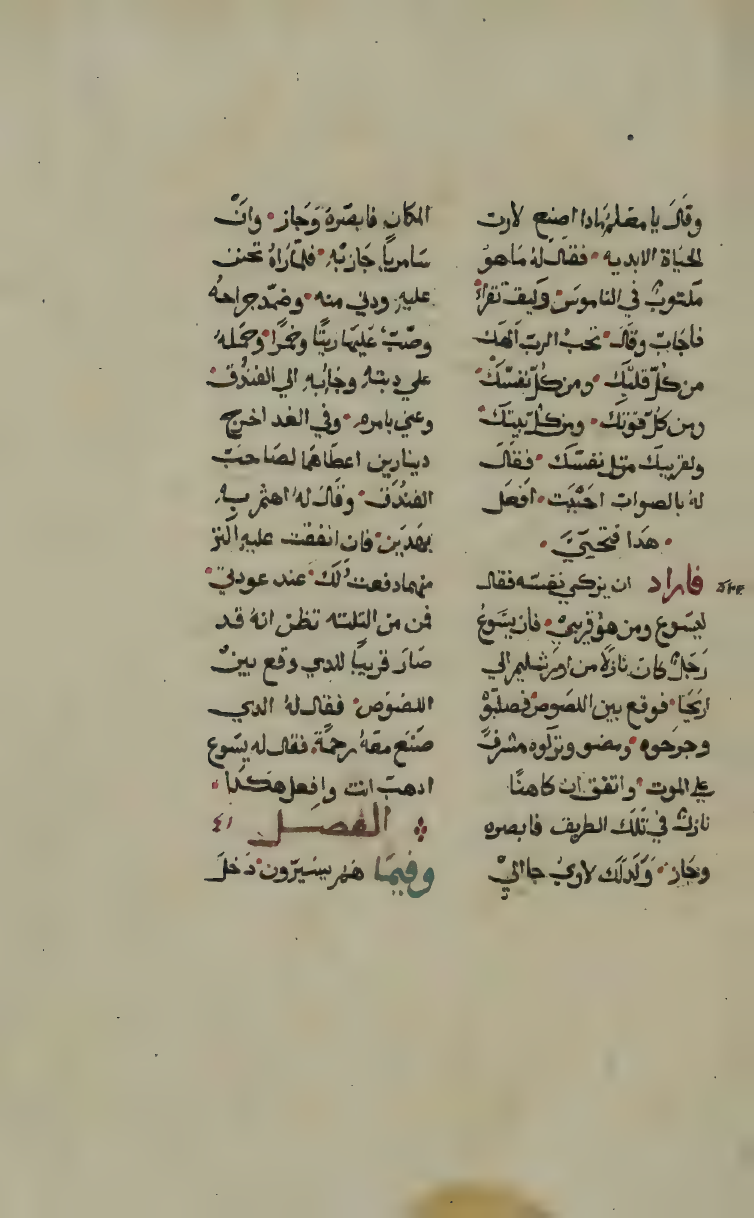 وقال يا معلم ماذا اصنع لارت
الحياة الابديه فقال له ما هو
مكتوب في الناموس وكيف تقرأ
فأجاب وقال تحب الرب الهك
من كل قلبك ومن كل نفسك
ومن كل قوتك ومن كل نيتك
ولقريبك متل نفسك فقال
له بالصواب اجبت افعل
هدا فتحيى
فاراد ان يزكي نفسه فقال
ليسوع ومن هو قريبي فان يسوع
رجل كان نازلا من اورشليم الي
اريحا فوقع بين اللصوص فصلبوه
وجرحوه ومضو وتركوه مشرف
علي الموت واتفق ان كاهنا
نازل في تلك الطريق فابصره
وجاز وكدلك لاوي جا الي
المكان فابصره وجاز وان
سامريا جاز به فلما راه تحنن
عليه ودني منه وضمد جراحه
وصب عليها زيتا وخمرا وحمله
علي دبته وجا به الي الفندق
وعني بامره وفي الغد اخرج
دينارين اعطاهما لصاحب
الفندق وقال له اهتم به
بهدين فان انفقت عليه اكتر
منهما دفعت لك عند عودتي
فمن من التلته تظن انه قد
صار قريبا للدي وقع بين
اللصوص فقال له الدي
صنع معه رحمة فقال له يسوع
ادهب انت وافعل هكدا
الفصل ٤١
وفيما هم يسيرون دخل